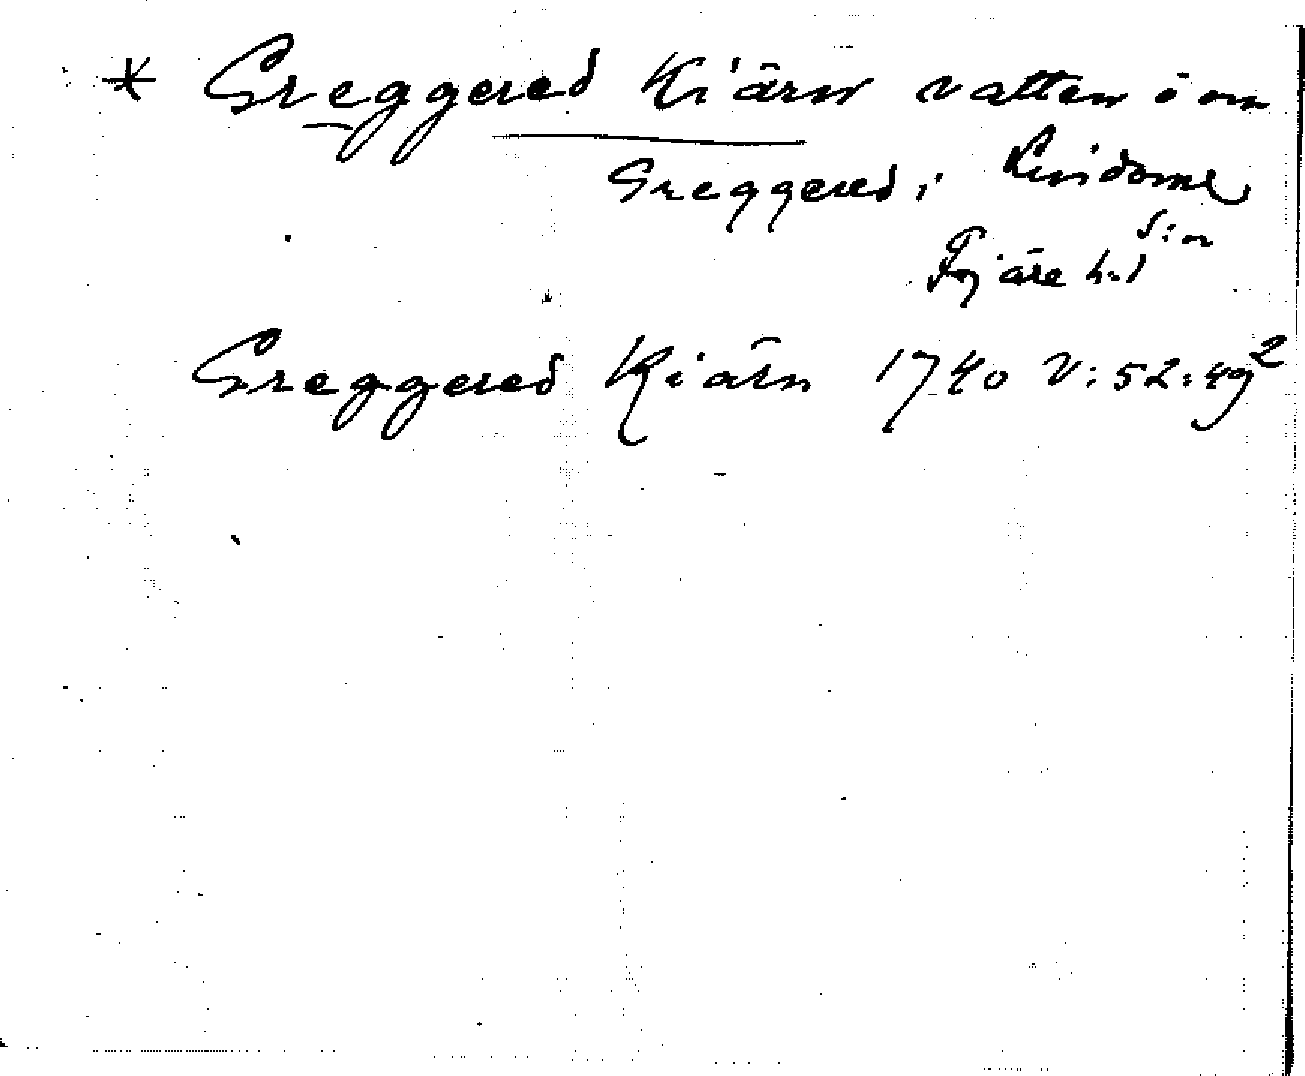 * Greggered Kiärn vatten ö om
Greggered i Lindome
S:n
Fjäre h:d
Greggered Kiärn 1740 V:52:49²